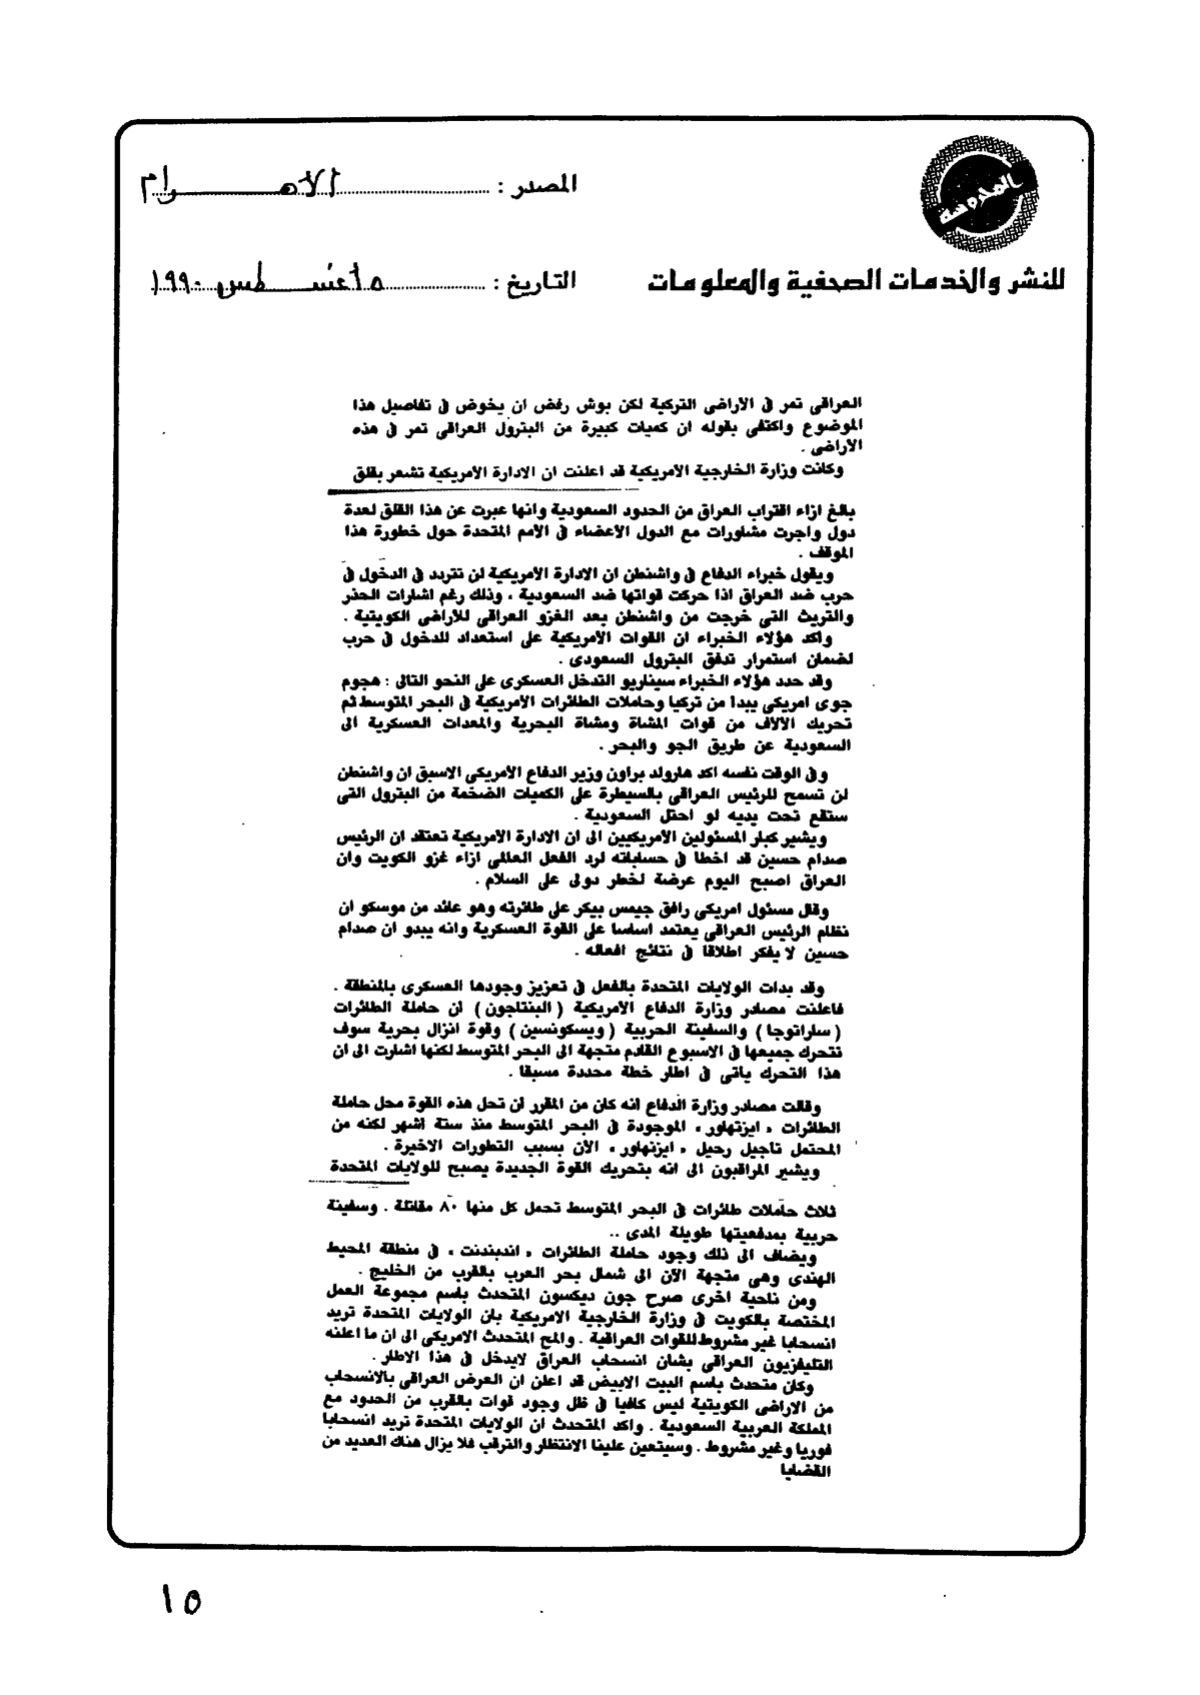 المحروسة
المصدر : الأهرام
للنشر والخدمات الصحفية والمعلومات
التاريخ : ٥ أغسطس ١٩٩٠
العراقى تمر فى الاراضى التركية لكن بوش رفض ان يخوض فى تفاصيل هذا
الموضوع واكتفى بقوله ان كميات كبيرة من البترول العراقى تمر فى هذه
الاراضى .
وكانت وزارة الخارجية الامريكية قد اعلنت ان الادارة الامريكية تشعر بقلق
بالغ ازاء اقتراب العراق من الحدود السعودية وانها عبرت عن هذا القلق لعدة
دول واجرت مشاورات مع الدول الاعضاء فى الامم المتحدة حول خطورة هذا
الموقف .
ويقول خبراء الدفاع فى واشنطن ان الادارة الامريكية لن تتردد فى الدخول فى
حرب ضد العراق اذا حركت قواتها ضد السعودية ، وذلك رغم اشارات الحذر
والتريث التى خرجت من واشنطن بعد الغزو العراقى للاراضى الكويتية .
واكد هؤلاء الخبراء ان القوات الامريكية على استعداد للدخول فى حرب
لضمان استمرار تدفق البترول السعودى .
وقد حدد هؤلاء الخبراء سيناريو التدخل العسكرى على النحو التالى : هجوم
جوى امريكى يبدا من تركيا وحاملات الطائرات الامريكية فى البحر المتوسط ثم
تحريك الالاف من قوات المشاة ومشاة البحرية والمعدات العسكرية الى
السعودية عن طريق الجو والبحر .
وفى الوقت نفسه اكد هارولد براون وزير الدفاع الامريكى الاسبق ان واشنطن
لن تسمح للرئيس العراقى بالسيطرة على الكميات الضخمة من البترول التى
ستقع تحت يديه لو احتل السعودية .
ويشير كبار المسئولين الامريكيين الى ان الادارة الامريكية تعتقد ان الرئيس
صدام حسين قد اخطا فى حساباته لرد الفعل العالمى ازاء غزو الكويت وان
العراق اصبح اليوم عرضة لخطر دولى على السلام .
وقال مسئول امريكى رافق جيمس بيكر على طائرته وهو عائد من موسكو ان
نظام الرئيس العراقى يعتمد اساسا على القوة العسكرية وانه يبدو ان صدام
حسين لا يفكر اطلاقا فى نتائج افعاله .
وقد بدات الولايات المتحدة بالفعل فى تعزيز وجودها العسكرى بالمنطقة .
فاعلنت مصادر وزارة الدفاع الامريكية ( البنتاجون ) ان حاملة الطائرات
( ساراتوجا ) والسفينة الحربية ( ويسكونسين ) وقوة انزال بحرية سوف
تتحرك جميعها فى الاسبوع القادم متجهة الى البحر المتوسط لكنها اشارت الى ان
هذا التحرك ياتى فى اطار خطة محددة مسبقا .
وقالت مصادر وزارة الدفاع انه كان من المقرر ان تحل هذه القوة محل حاملة
الطائرات « ايزنهاور » الموجودة فى البحر المتوسط منذ ستة اشهر لكنه من
المحتمل تاجيل رحيل « ايزنهاور » الآن بسبب التطورات الاخيرة .
ويشير المراقبون الى انه بتحريك القوة الجديدة يصبح للولايات المتحدة
ثلاث حاملات طائرات فى البحر المتوسط تحمل كل منها ٨٠ مقاتلة . وسفينة
حربية بمدفعيتها طويلة المدى ..
ويضاف الى ذلك وجود حاملة الطائرات « اندبندنت » فى منطقة المحيط
الهندى وهى متجهة الآن الى شمال بحر العرب بالقرب من الخليج .
ومن ناحية اخرى صرح جون ديكسون المتحدث باسم مجموعة العمل
المختصة بالكويت فى وزارة الخارجية الامريكية بان الولايات المتحدة تريد
انسحابا غير مشروط للقوات العراقية . والمح المتحدث الامريكى الى ان ما اعلنه
التليفزيون العراقى بشان انسحاب العراق لايدخل فى هذا الاطار .
وكان متحدث باسم البيت الابيض قد اعلن ان العرض العراقى بالانسحاب
من الاراضى الكويتية ليس كافيا فى ظل وجود قوات بالقرب من الحدود مع
المملكة العربية السعودية . واكد المتحدث ان الولايات المتحدة تريد انسحابا
فوريا وغير مشروط . وسيتعين علينا الانتظار والترقب فلا يزال هناك العديد من
القضايا
١٥